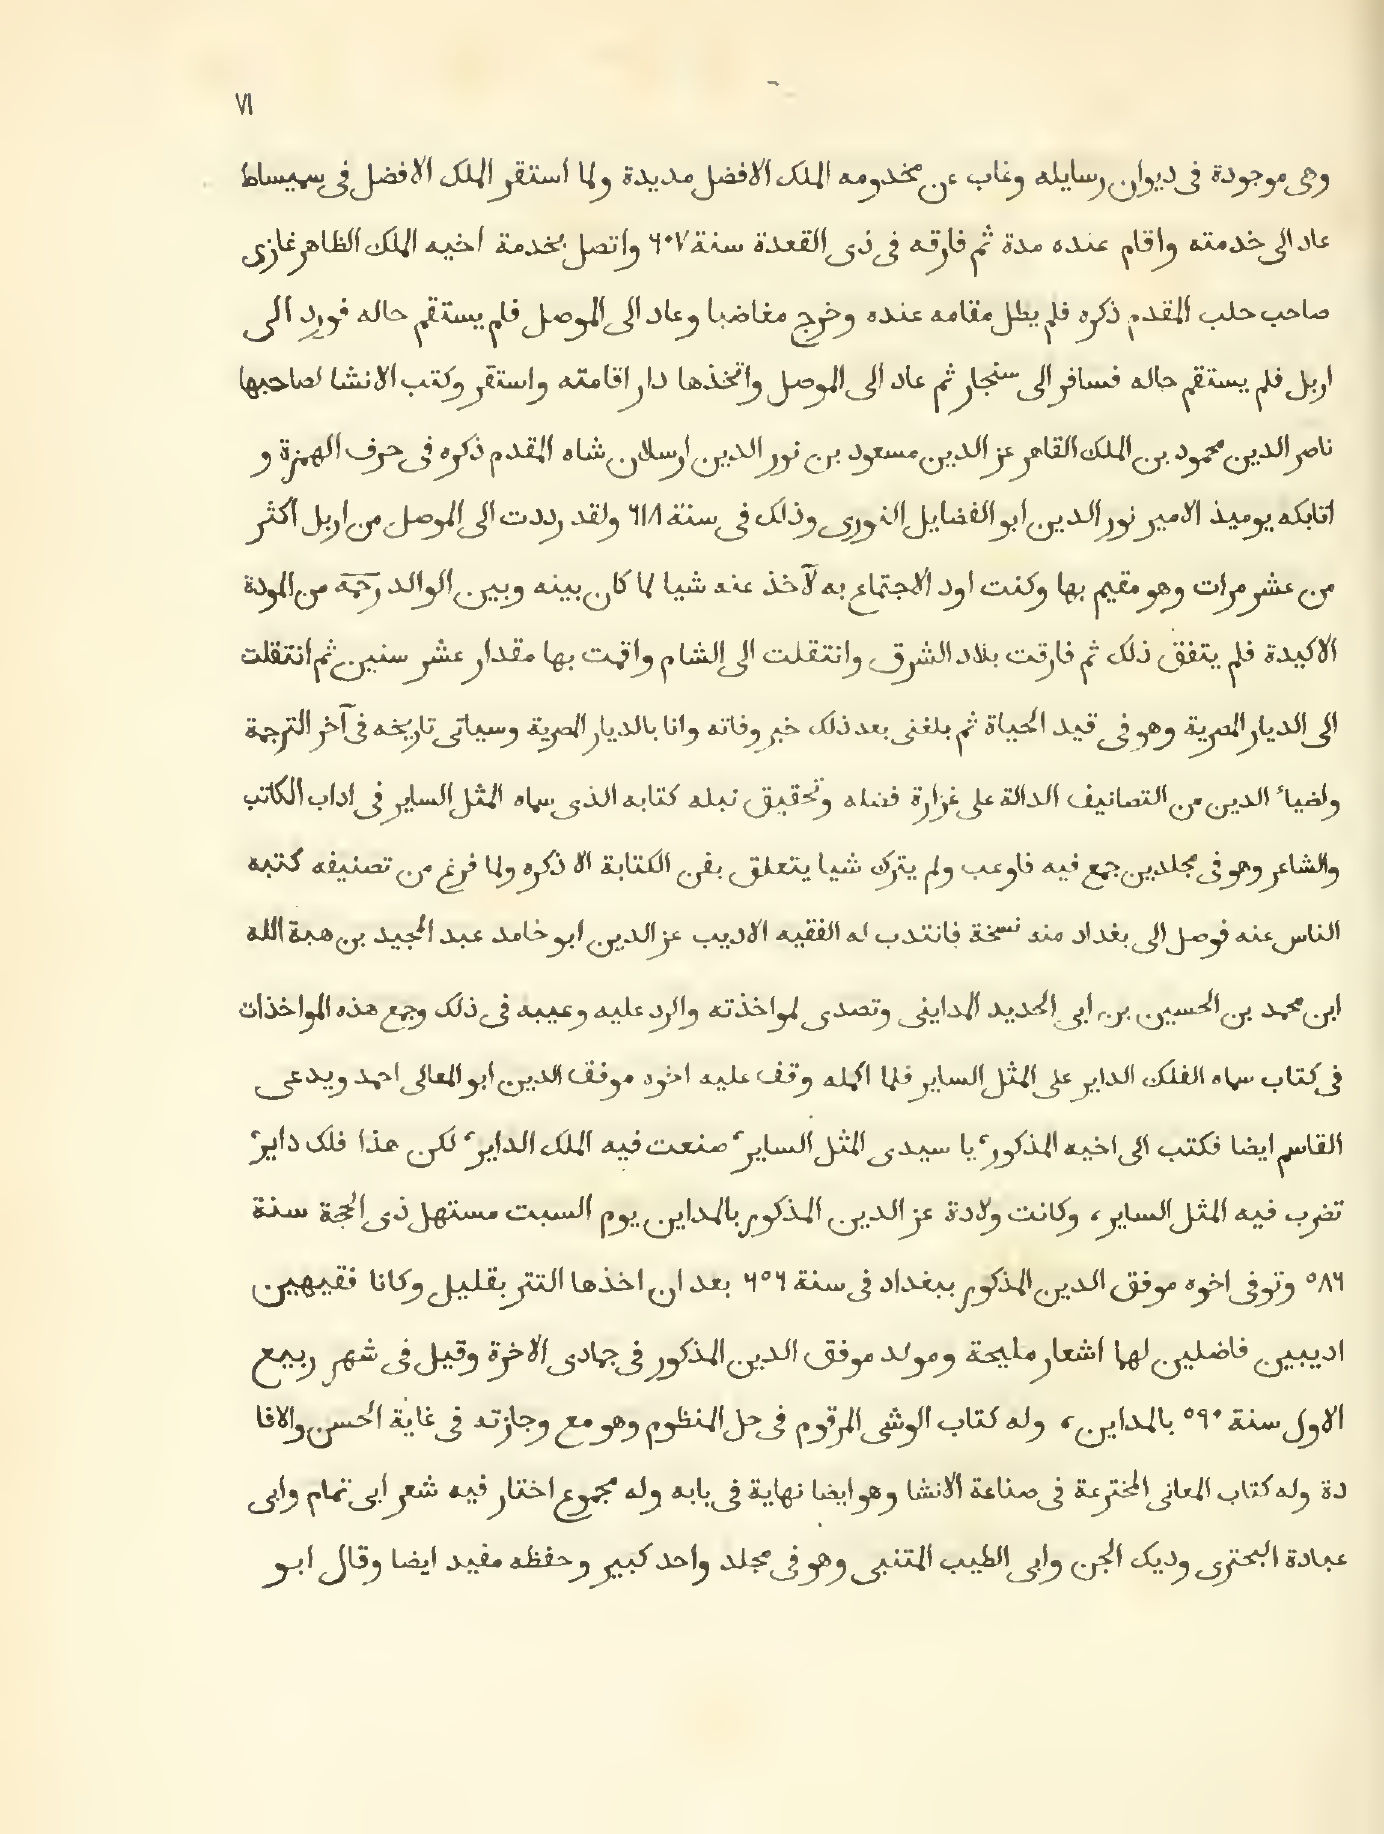 ٧١
وهى موجودة فى ديوان رسايله وغاب عن مخدومه الملك الافضل مديدة ولما استقر الملك الافضل فى سميساط
عاد الى خدمته واقام عنده مدة ثم فارقه فى ذى القعدة سنة ٦٠٧ واتصل بخدمة اخيه الملك الظاهر غازى
صاحب حلب المقدم ذكره فلم يطل مقامه عنده وخرج مغاضبا وعاد الى الموصل فلم يستقم حاله فورد الى
اربل فلم يستقم حاله فسافر الى سنجار ثم عاد الى الموصل واتخذها دار اقامته واستقر وكتب الانشا لصاحبها
ناصر الدين محمود بن الملك القاهر عز الدين مسعود بن نور الدين ارسلان شاه المقدم ذكره فى حرف الهمزة و
اتابكه يوميذ الامير نور الدين ابو الفضايل النورى وذلك فى سنة ٦١٨ ولقد رددت الى الموصل من اربل اكثر
من عشر مرات وهو مقيم بها وكنت اود الاجتماع به لآخذ عنه شيا لما كان بينه وبين الوالد رحمه من المودة
الاكيدة فلم يتفق ذلك ثم فارقت بلاد الشرق وانتقلت الى الشام واقمت بها مقدار عشر سنين ثم انتقلت
الى الديار المصرية وهو فى قيد الحياة ثم بلغنى بعد ذلك خبر وفاته وانا بالديار المصرية وسياتى تاريخه فى آخر الترجمة
ولضياء الدين من التصانيف الدالة على غزارة فضله وتحقيق نبله كتابه الذى سماه المثل الساير فى اداب الكاتب
والشاعر وهو فى مجلدين جمع فيه فاوعب ولم يترك شيا يتعلق بفن الكتابة الا ذكره ولما فرغ من تصنيفه كتبه
الناس عنه فوصل الى بغداد منه نسخة فانتدب له الفقيه الاديب عز الدين ابو حامد عبد المجيد بن هبة الله
ابن محمد بن الحسين بن ابى الحديد المداينى وتصدى لمواخذته والرد عليه وعيبه فى ذلك وجمع هذه المواخذات
فى كتاب سماه الفلك الداير على المثل الساير فلما اكمله وقف عليه اخوه موفق الدين ابو المعالى احمد ويدعى
القاسم ايضا فكتب الى اخيه المذكور، يا سيدى المثل الساير، صنعت فيه الملك الداير، لكن هذا فلك داير،
تضرب فيه المثل الساير، وكانت ولادة عز الدين المذكور بالمداين يوم السبت مستهل ذى الحجة سنة
٥٨٦ وتوفى اخوه موفق الدين المذكور ببغداد فى سنة ٦٥٦ بعد ان اخذها التتر بقليل وكانا فقيهين
اديبين فاضلين لهما اشعار مليحة ومولد موفق الدين المذكور فى جمادى الاخرة وقيل فى شهر ربيع
الاول سنة ٥٩٠ بالمداين، وله كتاب الوشى المرقوم فى حل المنظوم وهو مع وجازته فى غاية الحسن والافا
دة وله كتاب المعانى المخترعة فى صناعة الانشا وهو ايضا نهاية فى بابه وله مجموع اختار فيه شعر ابى تمام وابى
عبادة البحترى وديك الجن وابى الطيب المتنبى وهو فى مجلد واحد كبير وحفظه مفيد ايضا وقال ابو